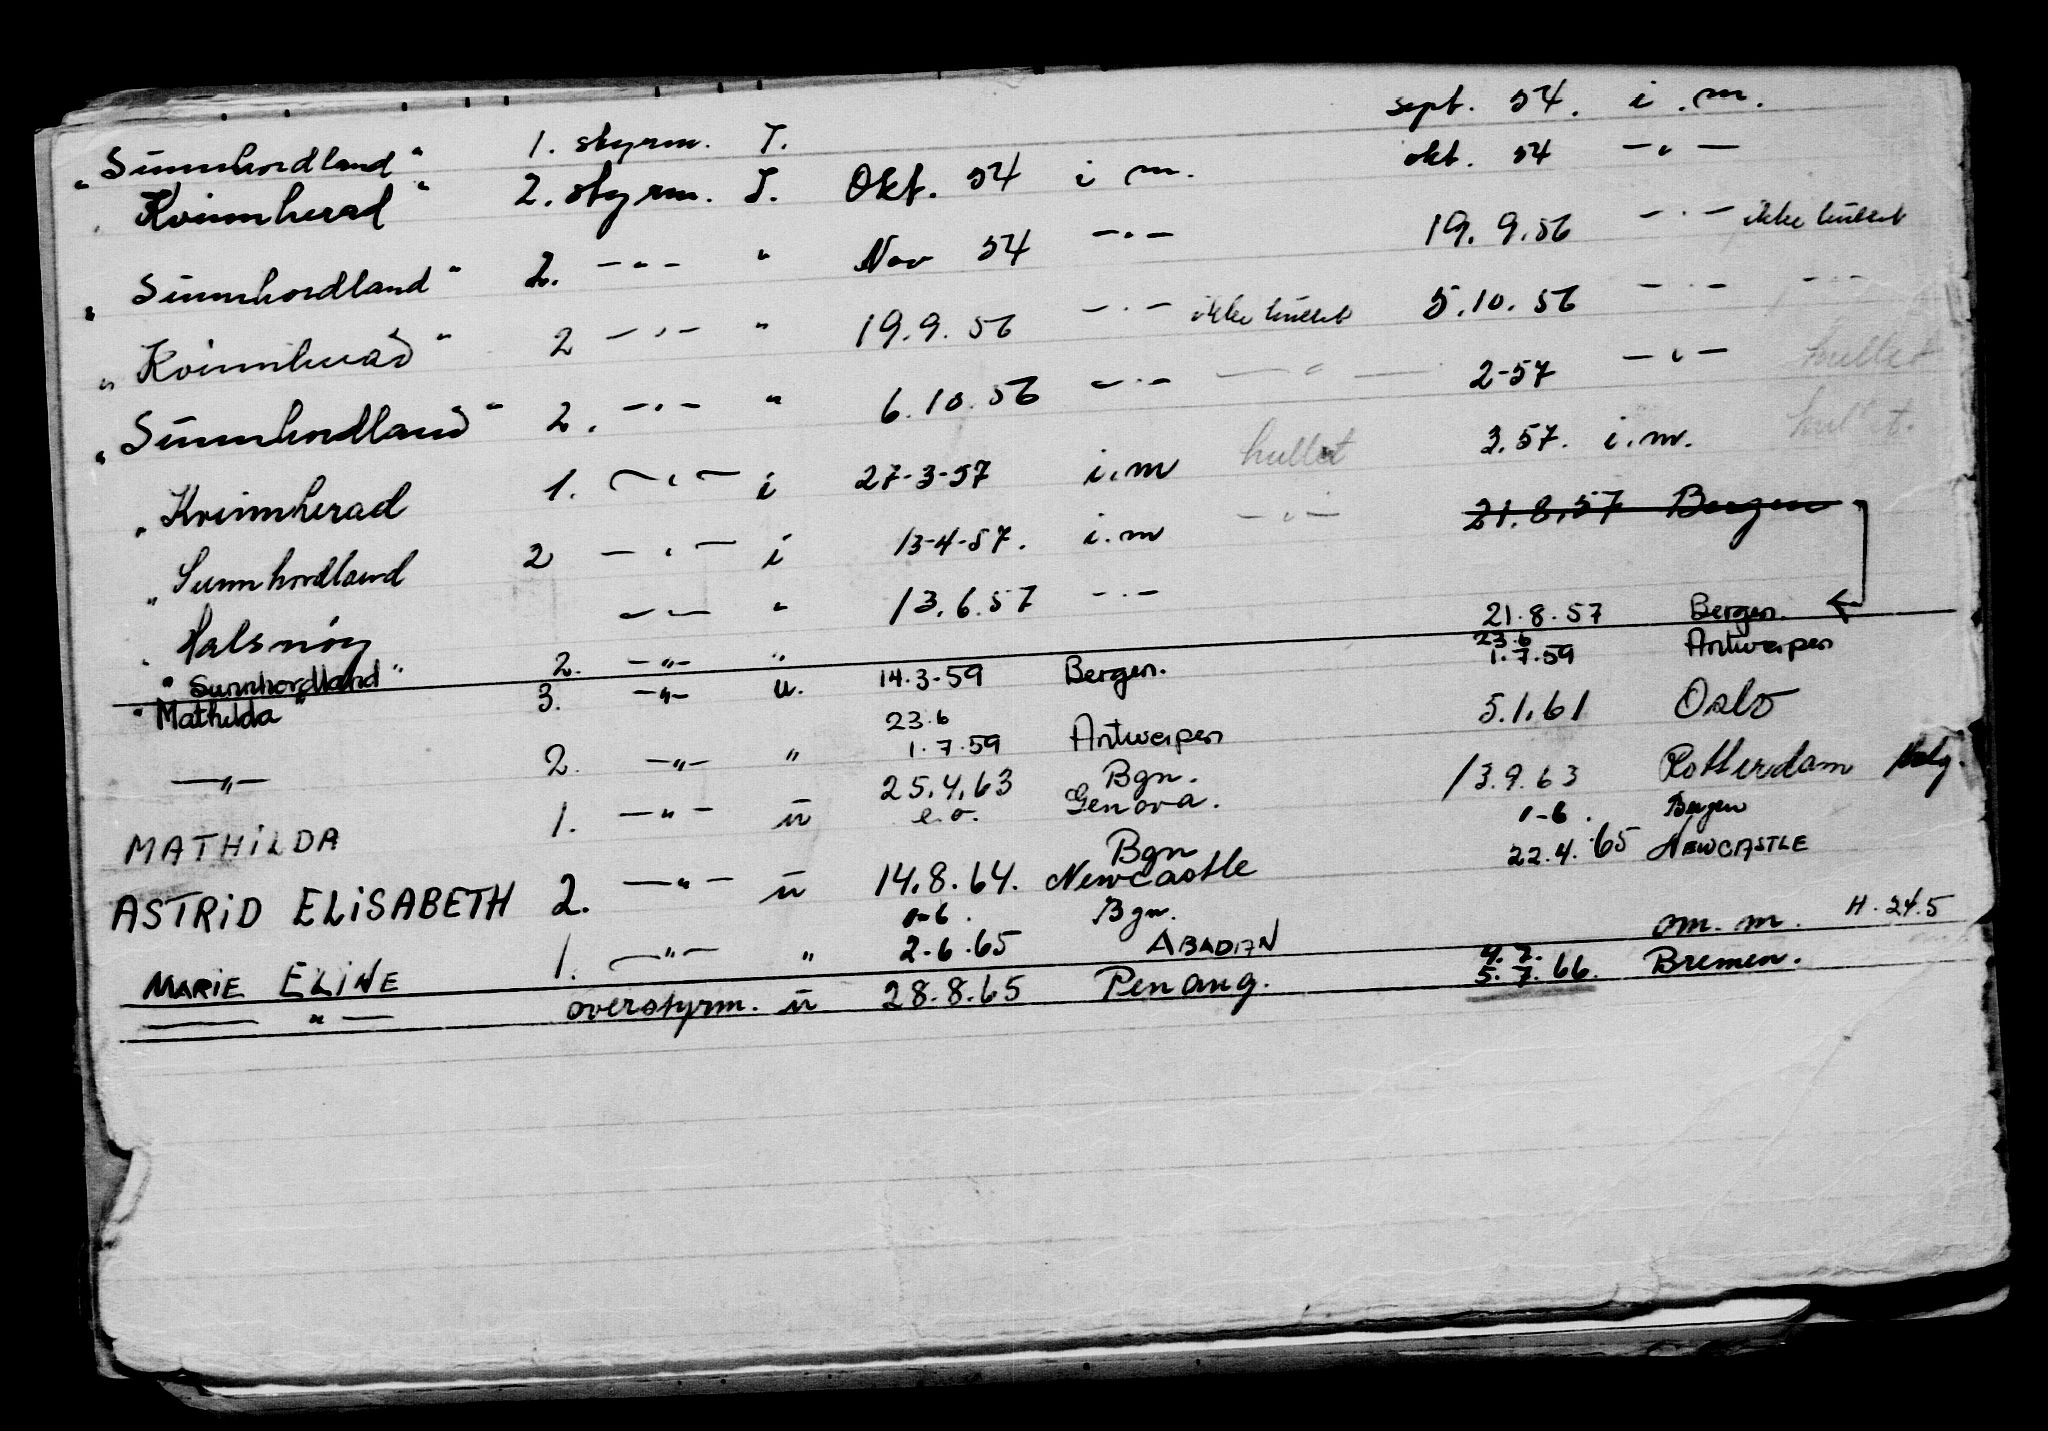 "Sunnhordland" 1. styrm. I. sept. 54. i.m.
"Kvinnherad" 2. styrm. I. Okt. 54 i m. okt. 54 -"-
"Sunnhordland" 2. -"- " Nov 54 -"- 19.9.56 -"- ikke hullet
"Kvinnherad" 2 -"- " 19.9.56 -"- ikke hullet 5.10.56 -"- -"-
"Sunnhordland" 2. -"- " 6.10.56 -"- -"- 2-57 -"- hullet
"Kvinnherad 1. -"- i 27-3-57 i.m hullet 3.57. i.m. hullet.
"Sunnhordland 2 -"- i 13-4-57. i.m -"- 21.8.57 Bergen
"Halsnøy -"- " 13.6.57 -"-
"Sunnhordland" 2. -"- " 21.8.57 Bergen.
"Mathilda" 3. -"- u. 14.3.59 Bergen. 23.6 1.7.59 Antwerpen
-"- 2. -"- " 23.6 1.7.59 Antwerpen 5.1.61 Oslo
MATHILDA 1. -"- u 25.4.63 e.o. Bgn. Genova. 13.9.63 Rotterdam
ASTRID ELISABETH 2. -"- u 14.8.64. Bgn Newcastle 1-6. Bergen 22.4.65 NEWCASTLE
MARIE ELINE 1. -"- " 1-6. Bgn. 2-6.65 ABADAN om. m. H. 24.5
-"- overstyrm. u 28.8.65 Penang. 4.7. 5.7.66. Bremen.